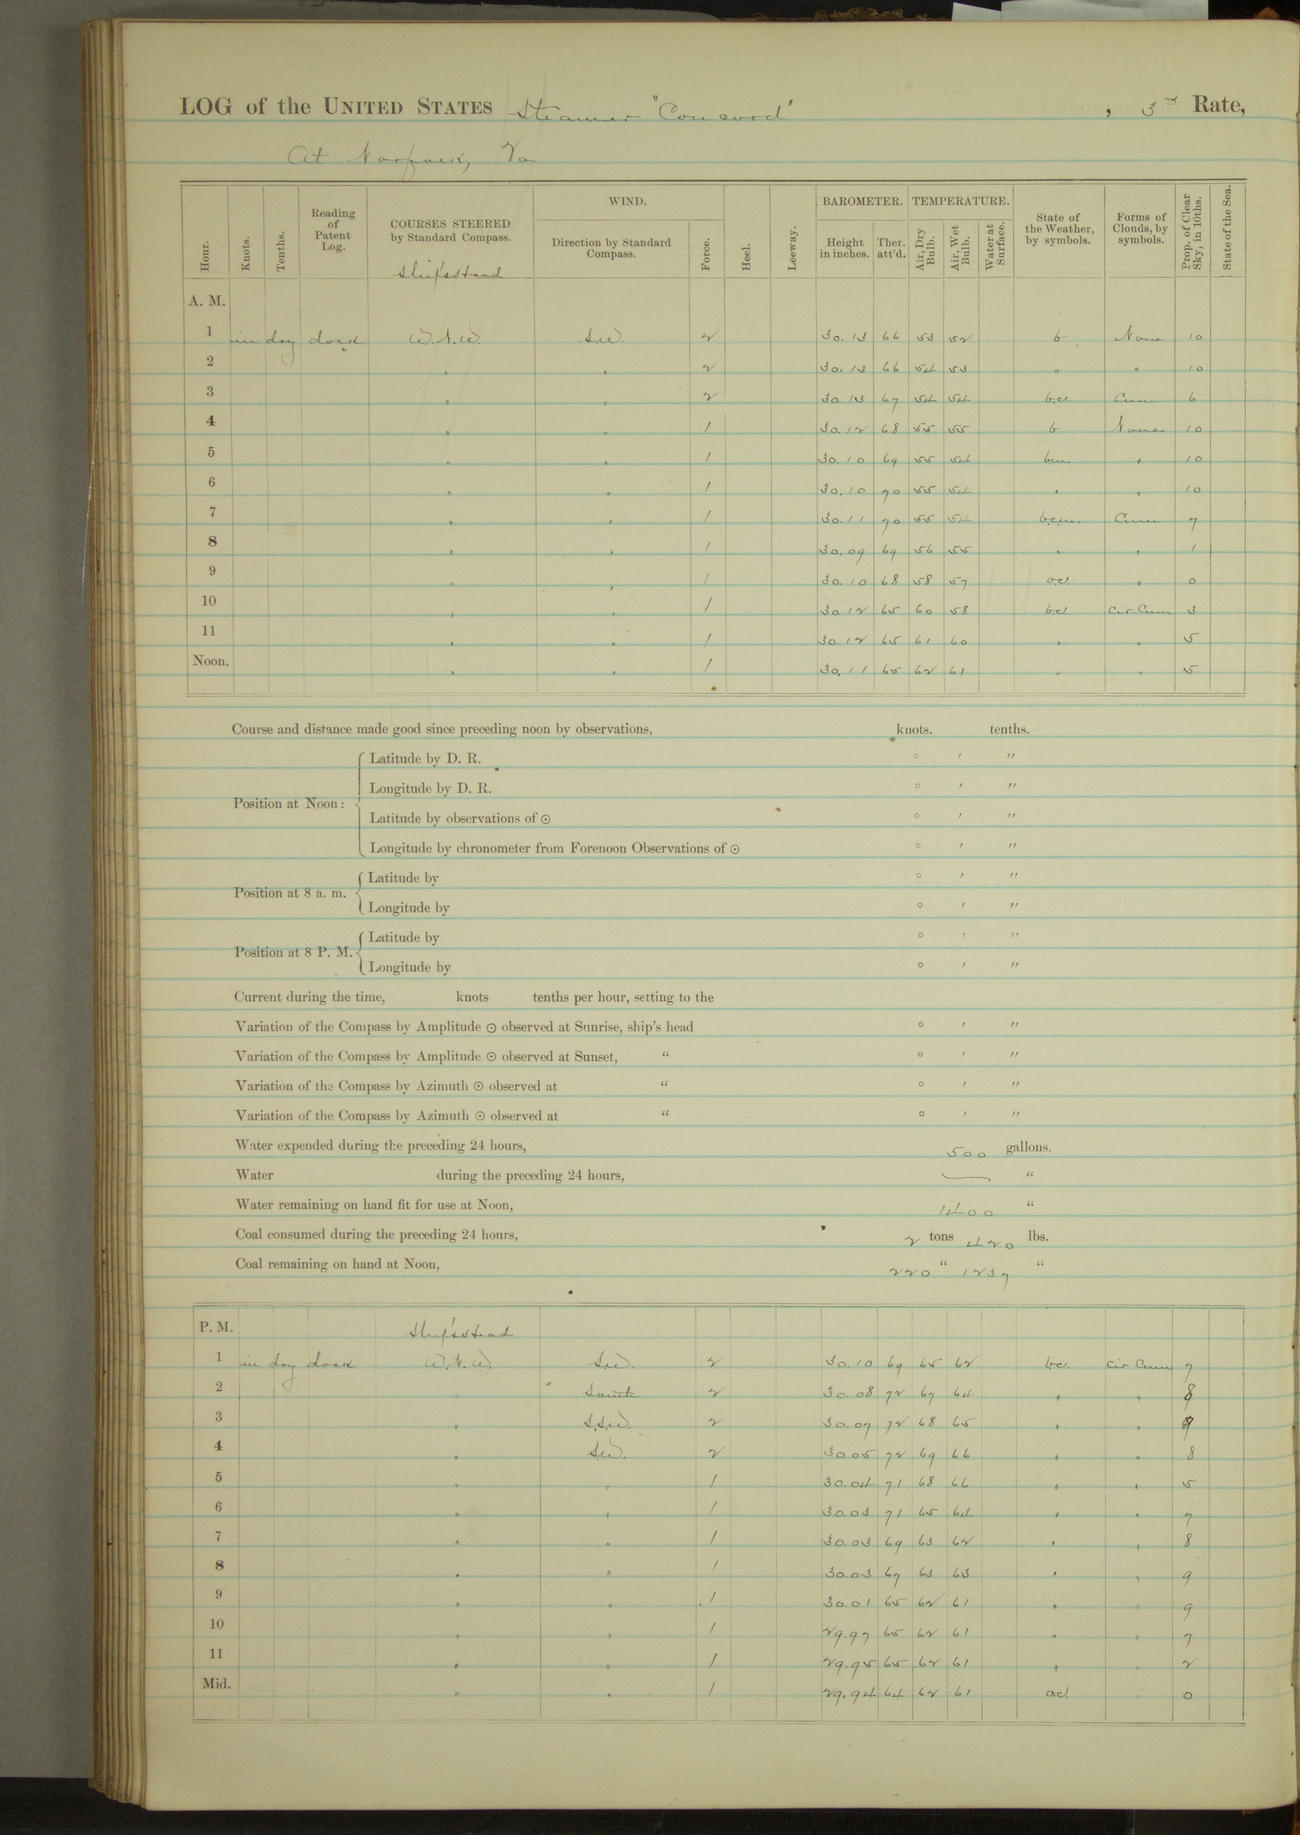 LOG of the UNITED STATES Steamer "Concord", 3rd Rate,
At Norfolk, Va
Hour. Knots. Tenths. Reading of Patent Log. COURSES STEERED by Standard Compass. WIND. Direction by Standard Compass. Force. Heel. Leeway. BAROMETER. Height in inches. Ther. att'd. TEMPERATURE. Air, Dry Bulb. Air, Wet Bulb. Water at Surface. State of the Weather, by symbols. Forms of Clouds, by symbols. Prop. of Clear Sky, in 10ths. State of the Sea.
Ship's head
A. M.
1 in dry dock W.N.W. S.W. 2 30.13 66 53 52 b None 10
2 " " 2 30.13 66 54 53 " " 10
3 " " 2 30.13 67 54 54 b.c. Cum 6
4 " " 1 30.12 68 55 55 b None 10
5 " " 1 30.10 69 55 54 b.m. " 10
6 " " 1 30.10 70 55 54 " " 10
7 " " 1 30.11 70 55 54 b.c.m. Cum 7
8 " " 1 30.09 69 56 55 " " 1
9 " " 1 30.10 68 58 57 o.c. " 0
10 " " 1 30.12 65 60 58 bc Cir Cum 3
11 " " 1 30.12 65 61 60 " " 5
Noon. " " 1 30.11 65 62 61 " " 5
Course and distance made good since preceding noon by observations, knots. tenths.
Position at Noon:
Latitude by D. R. ° ′ ″
Longitude by D. R. ° ′ ″
Latitude by observations of ☉ ° ′ ″
Longitude by chronometer from Forenoon Observations of ☉ ° ′ ″
Position at 8 a. m.
Latitude by ° ′ ″
Longitude by ° ′ ″
Position at 8 P. M.
Latitude by ° ′ ″
Longitude by ° ′ ″
Current during the time, knots tenths per hour, setting to the
Variation of the Compass by Amplitude ☉ observed at Sunrise, ship's head ° ′ ″
Variation of the Compass by Amplitude ☉ observed at Sunset, " ° ′ ″
Variation of the Compass by Azimuth ☉ observed at " ° ′ ″
Variation of the Compass by Azimuth ☉ observed at " ° ′ ″
Water expended during the preceding 24 hours, 500 gallons.
Water during the preceding 24 hours, — "
Water remaining on hand fit for use at Noon, 1400 "
Coal consumed during the preceding 24 hours, 2 tons 420 lbs.
Coal remaining on hand at Noon, 220 " 1237 "
P. M. Ship's head
1 in dry dock W.N.W. S.W. 2 30.10 69 65 62 bc. Cir Cum 7
2 " South 2 30.08 72 67 64 " " 8
3 " S.S.W. 2 30.07 72 68 65 " " 9
4 " S.W. 2 30.05 72 69 66 " " 8
5 " " 1 30.04 71 68 66 " " 5
6 " " 1 30.03 71 65 64 " " 7
7 " " 1 30.03 69 63 62 " " 8
8 " " 1 30.03 67 63 63 " " 9
9 " " 1 30.01 65 62 61 " " 9
10 " " 1 29.97 65 62 61 " " 7
11 " " 1 29.95 65 62 61 " " 2
Mid. " " 1 29.94 64 62 61 o.c. " 0